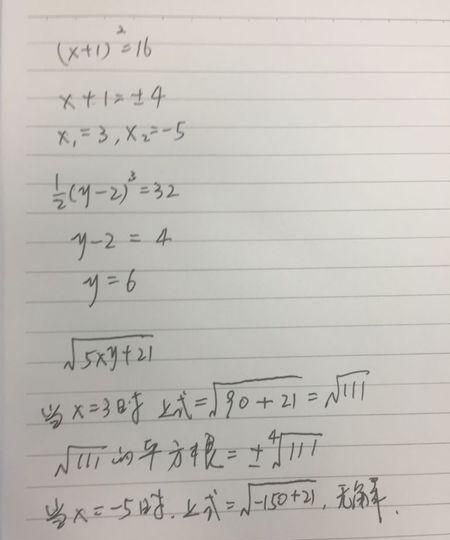 (x+1)²=16
x+1=±4
x₁=3, x₂=-5
½(y-2)³=32
y-2=4
y=6
√(5xy+21)
当x=3时 上式=√(90+21)=√111
√111的平方根=±⁴√111
当x=-5时. 上式=√(-150+21), 无解.